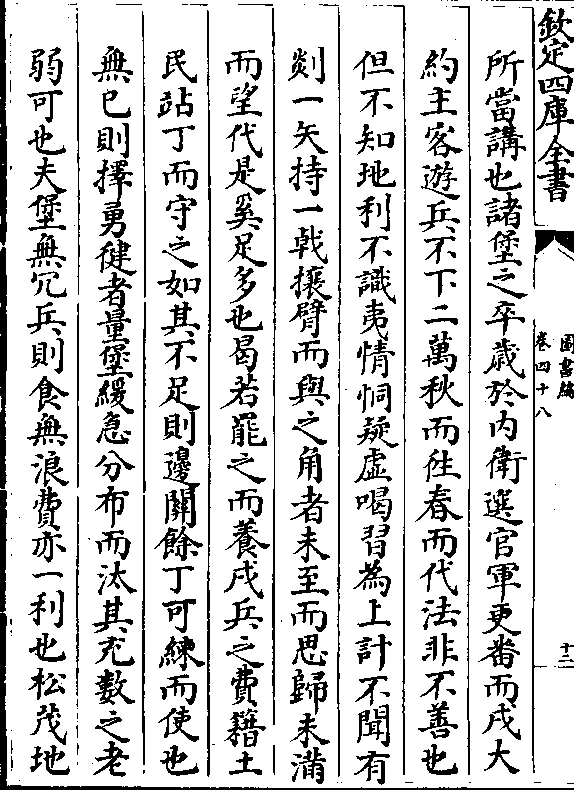 欽定四庫全書
圖書編
卷四十八
十三
所當講也諸堡之卒歲於内衛選官軍更番而戍大
約主客遊兵不下二萬秋而徃春而代法非不善也
但不知地利不識夷情恫疑虚喝習為上計不聞有
剡一矢持一戟攘臂而與之角者未至而思歸未滿
而望代是奚足多也曷若罷之而養戍兵之費籍土
民站丁而守之如其不足則邊關餘丁可練而使也
無已則擇勇健者量堡緩急分布而汰其充數之老
弱可也夫堡無冗兵則食無浪費亦一利也松茂地